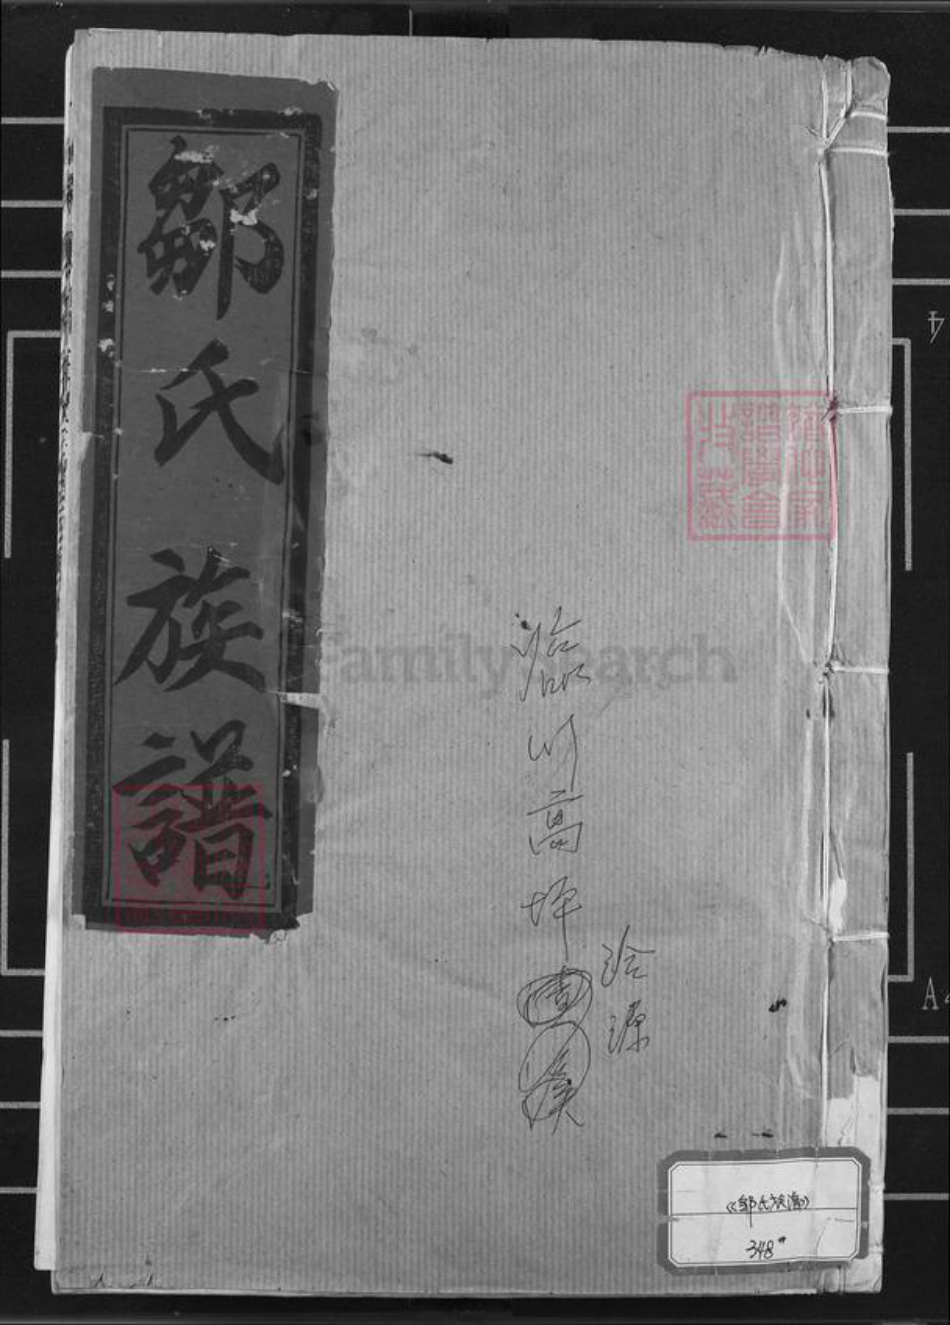 鄒氏族譜
臨川高坪
洽源
FamilySearch
《邹氏族谱》
348
A